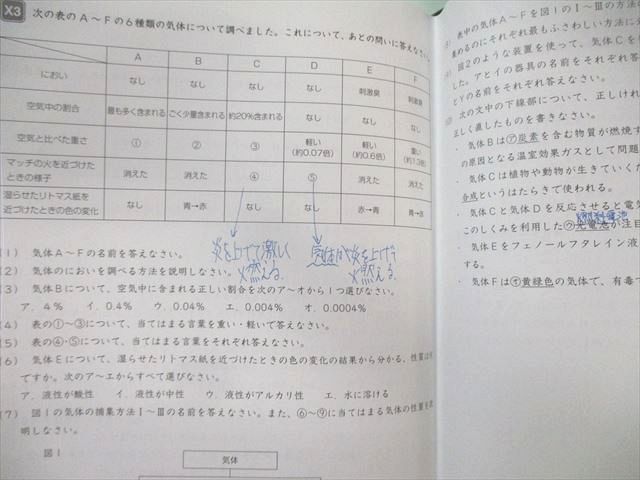 X3 次の表のA～Fの6種類の気体について調べました。これについて、あとの問いに答えなさい。
A B C D E F
におい なし なし なし なし 刺激臭 刺激臭
空気中の割合 最も多く含まれる ごく少量含まれる 約20%含まれる なし なし なし
空気と比べた重さ ① ② ③ 軽い(約0.07倍) 軽い(約0.6倍) 重い(約1.3倍)
マッチの火を近づけたときの様子 消えた 消えた ④ ⑤ 消えた 消えた
湿らせたリトマス紙を近づけたときの色の変化 なし 青→赤 なし なし 赤→青 青→赤
炎を上げて激しく
燃える
気体が炎を上げて
燃える
(1) 気体A～Fの名前を答えなさい。
(2) 気体のにおいを調べる方法を説明しなさい。
(3) 気体Bについて、空気中に含まれる正しい割合を次のア～オから1つ選びなさい。
ア. 4% イ. 0.4% ウ. 0.04% エ. 0.004% オ. 0.0004%
(4) 表の①～③について、当てはまる言葉を重い・軽いで答えなさい。
(5) 表の④・⑤について、当てはまる言葉をそれぞれ答えなさい。
(6) 気体Eについて、湿らせたリトマス紙を近づけたときの色の変化の結果から分かる、性質は
ですか。次のア～エからすべて選びなさい。
ア. 液性が酸性 イ. 液性が中性 ウ. 液性がアルカリ性 エ. 水に溶ける
(7) 図1の気体の捕集方法Ⅰ～Ⅲの名前を答えなさい。また、⑥～⑨に当てはまる気体の性質を
明しなさい。
図1
気体
表中の気体A～Fを図1のⅠ～Ⅲの方法に
集めるのにそれぞれ最もふさわしい方法に
図2のような装置を使って、気体Cを
した。アとイの器具の名前をそれぞれ答
とYの名前をそれぞれ答えなさい。
次の文中の下線部について、正しけれ
正しく直したものを書きなさい。
・気体Bは㋐炭素を含む物質が燃焼す
の原因となる温室効果ガスとして問題
・気体Cは植物や動物が生きていく
合成というはたらきで使われる。
・気体Cと気体Dを反応させると電気
燃料電池
このしくみを利用した㋒光電池が注目
・気体Eをフェノールフタレイン液
する。
・気体Fは㋔黄緑色の気体で、有毒で